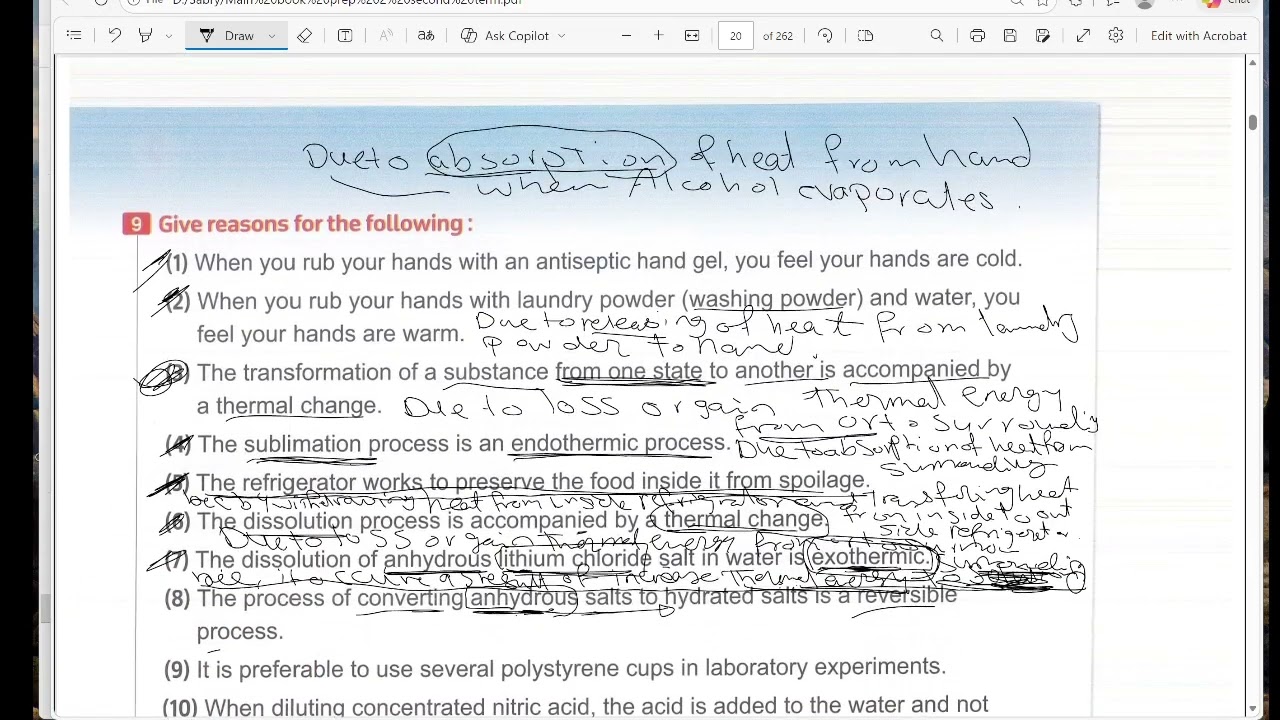 File D:/Sabry/Main%20book%20prep%202%20second%20term.pdf
Draw
Ask Copilot
20 of 262
Edit with Acrobat
Due to absorption of heat from hand
when Alcohol evaporates.
9 Give reasons for the following :
(1) When you rub your hands with an antiseptic hand gel, you feel your hands are cold.
(2) When you rub your hands with laundry powder (washing powder) and water, you
feel your hands are warm. Due to releasing of heat from laundry
powder to hand
(3) The transformation of a substance from one state to another is accompanied by
a thermal change. Due to loss or gain thermal energy
from or to surrounding
(4) The sublimation process is an endothermic process. Due to absorption of heat from
surrounding
(5) The refrigerator works to preserve the food inside it from spoilage.
by withdrawing heat from inside refrigerator and transfering heat
from inside to out
side refrigerator
(6) The dissolution process is accompanied by a thermal change.
Due to loss or gain thermal energy from or to
surrounding
(7) The dissolution of anhydrous lithium chloride salt in water is exothermic.
increase thermal energy
(8) The process of converting anhydrous salts to hydrated salts is a reversible
process.
(9) It is preferable to use several polystyrene cups in laboratory experiments.
(10) When diluting concentrated nitric acid, the acid is added to the water and not